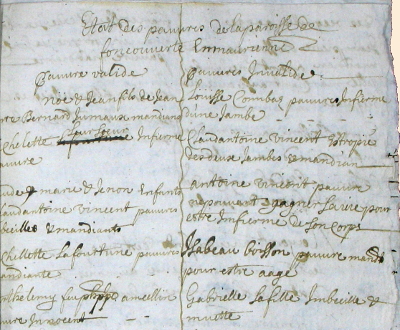 Etat des pauvres de la paroisse de
fourcouverte En maurienne
pauvre valide
Noë & Jean fils de Jean
Bernard Jumeaux mandians
Chelette Infirme
pauvre
marie & Jenon Enfants
Claudantoine vincent pauvres
imbeilles & mandiants
Chellette La fourtune pauvres
mandiante
Amellin
pauvre Innocent
pauvres Invalide
Louise Combaz pauvres Infierme
dune Jambe
Claudantoine vincent Estropié
des deux Jambes & mandian
antoine vincent pauvre
ne pouvant gagner sa vie pour
estre Infierme de son Corps
Isabeau boisson pauvre mandi
pour estre agé
Gabrielle La fille Imbeille &
muette